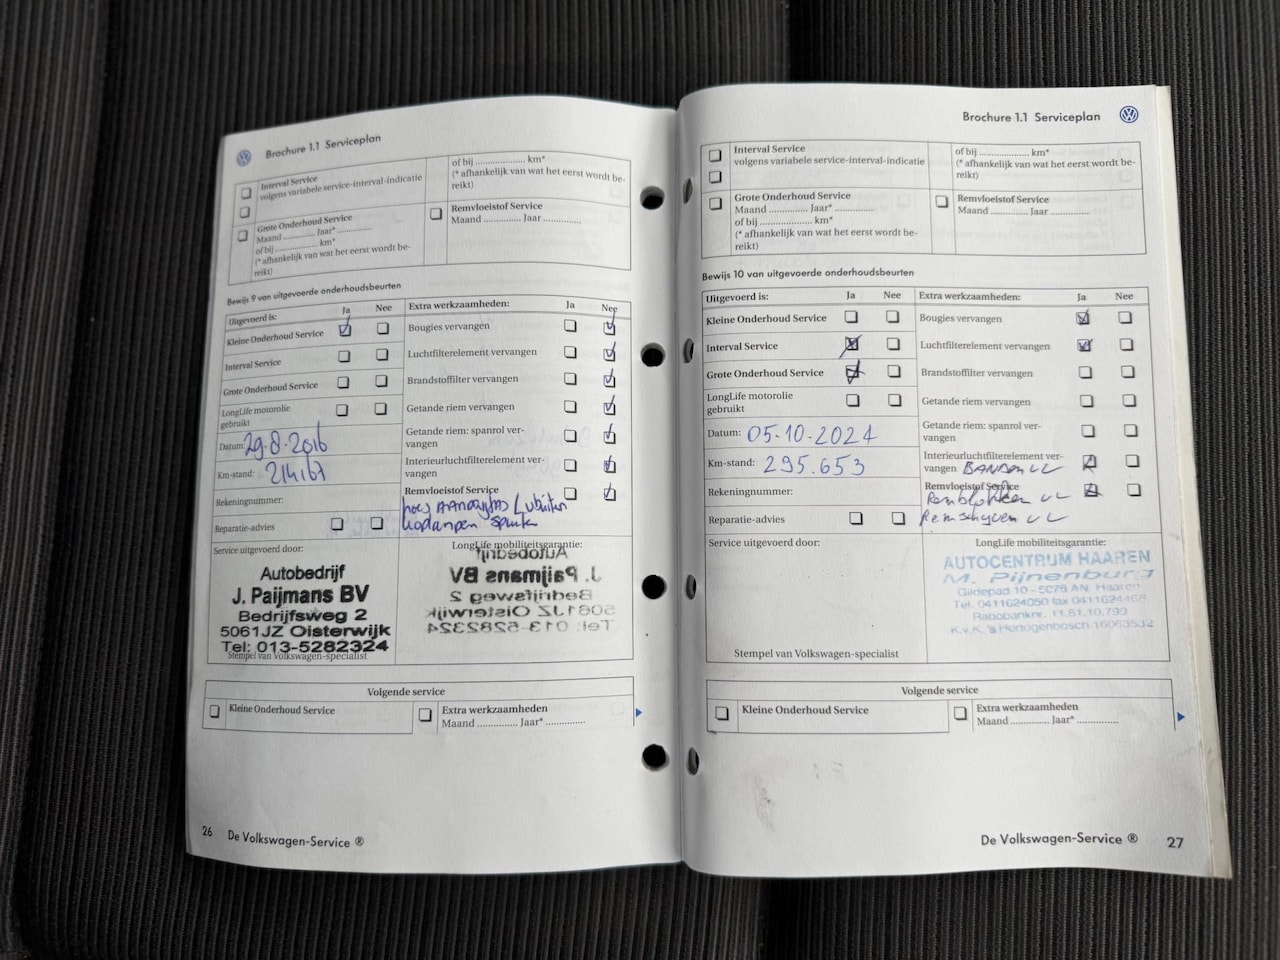 Brochure 1.1 Serviceplan
Interval Service
volgens variabele service-interval-indicatie
of bij .................. km*
(* afhankelijk van wat het eerst wordt be-
reikt)
Grote Onderhoud Service
Maand .............. Jaar* ..............
of bij .................. km*
(* afhankelijk van wat het eerst wordt be-
reikt)
Remvloeistof Service
Maand .............. Jaar ..............
Bewijs 9 van uitgevoerde onderhoudsbeurten
Uitgevoerd is: Ja Nee
Kleine Onderhoud Service
Interval Service
Grote Onderhoud Service
LongLife motorolie
gebruikt
Datum: 29-8-2016
Km-stand: 214167
Rekeningnummer:
Reparatie-advies
Extra werkzaamheden: Ja Nee
Bougies vervangen
Luchtfilterelement vervangen
Brandstoffilter vervangen
Getande riem vervangen
Getande riem: spanrol ver-
vangen
Interieurluchtfilterelement ver-
vangen
Remvloeistof Service
Service uitgevoerd door:
Autobedrijf
J. Paijmans BV
Bedrijfsweg 2
5061JZ Oisterwijk
Tel: 013-5282324
Stempel van Volkswagen-specialist
LongLife mobiliteitsgarantie:
Autobedrijf
J. Paijmans BV
Bedrijfsweg 2
5061JZ Oisterwijk
Tel: 013-5282324
Volgende service
Kleine Onderhoud Service
Extra werkzaamheden
Maand .............. Jaar* ..............
26 De Volkswagen-Service ®
Brochure 1.1 Serviceplan
Interval Service
volgens variabele service-interval-indicatie
of bij .................. km*
(* afhankelijk van wat het eerst wordt be-
reikt)
Grote Onderhoud Service
Maand .............. Jaar* ..............
of bij .................. km*
(* afhankelijk van wat het eerst wordt be-
reikt)
Remvloeistof Service
Maand .............. Jaar ..............
Bewijs 10 van uitgevoerde onderhoudsbeurten
Uitgevoerd is: Ja Nee
Kleine Onderhoud Service
Interval Service
Grote Onderhoud Service
LongLife motorolie
gebruikt
Datum: 05-10-2024
Km-stand: 295.653
Rekeningnummer:
Reparatie-advies
Extra werkzaamheden: Ja Nee
Bougies vervangen
Luchtfilterelement vervangen
Brandstoffilter vervangen
Getande riem vervangen
Getande riem: spanrol ver-
vangen
Interieurluchtfilterelement ver-
vangen BANDEN VL
Remvloeistof Service
Remblokken VL
Remschyven VL
Service uitgevoerd door:
Stempel van Volkswagen-specialist
LongLife mobiliteitsgarantie:
AUTOCENTRUM HAAREN
M. Pijnenburg
Gildepad 10 - 5076 AN Haaren
Tel. 0411624050 fax 0411624468
Rabobanknr. 11.51.10.793
K.v.K. 's Hertogenbosch 16063532
Volgende service
Kleine Onderhoud Service
Extra werkzaamheden
Maand .............. Jaar* ..............
De Volkswagen-Service ® 27